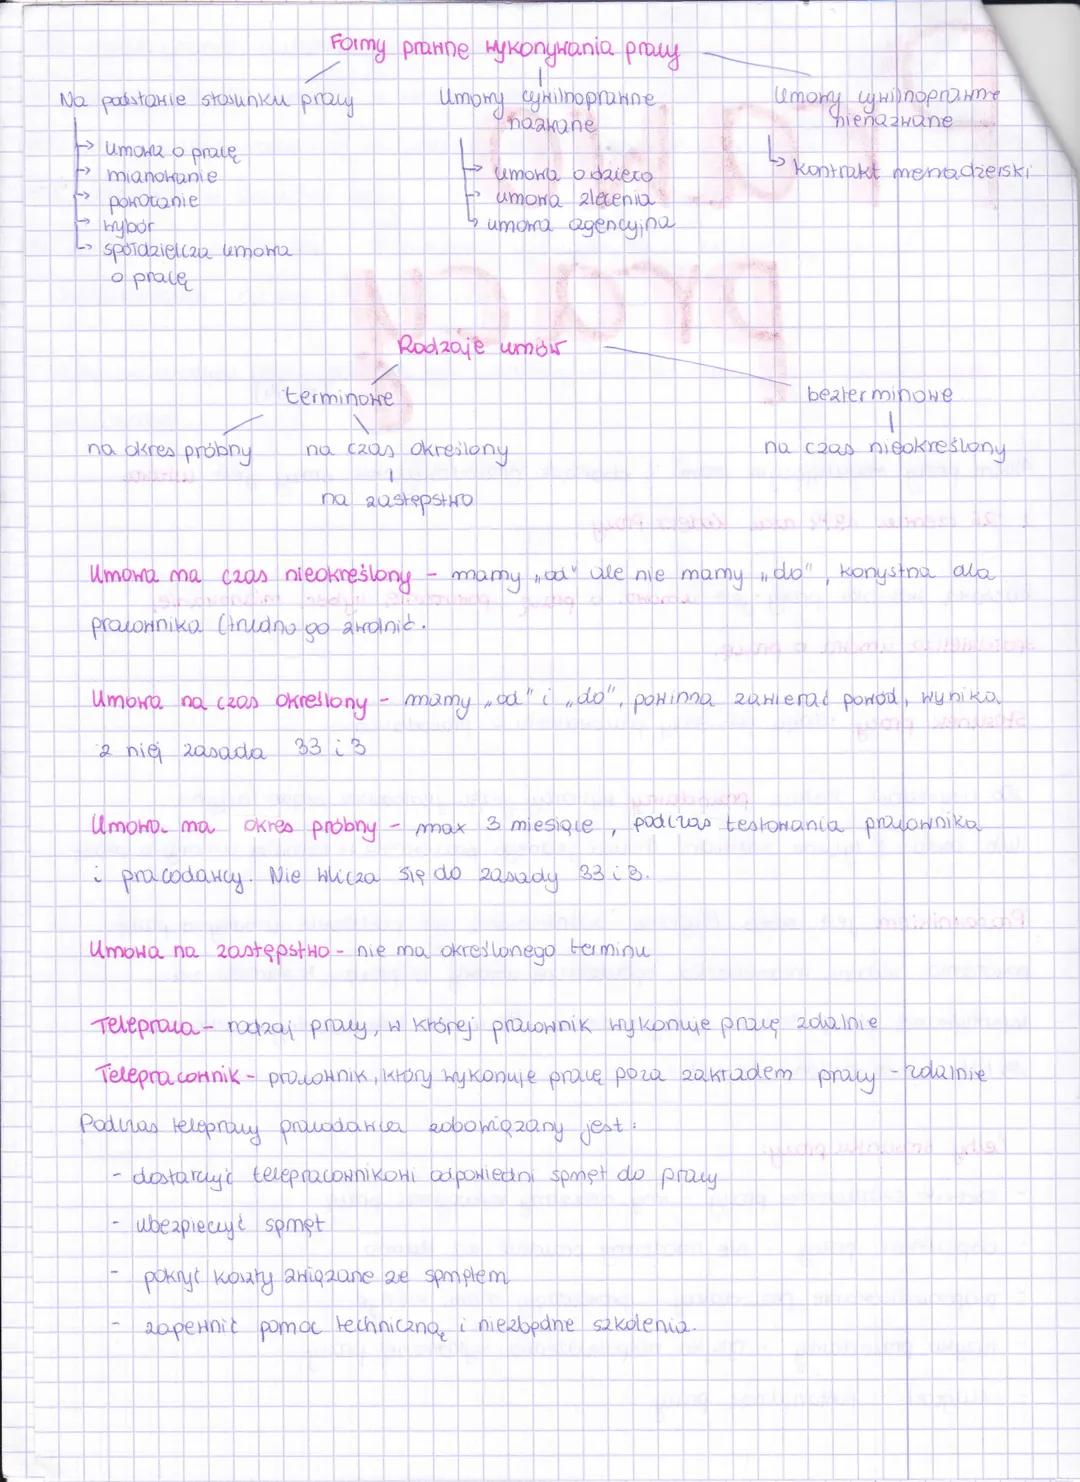 Formy prawne wykonywania pracy
Na podstawie stosunku pracy
→ umowa o pracę
→ mianowanie
→ powołanie
→ wybór
→ spółdzielcza umowa
o pracę
Umowy cywilnoprawne
nazwane
→ umowa o dzieło
→ umowa zlecenia
→ umowa agencyjna
Umowy cywilnoprawne
nienazwane
→ kontrakt menadżerski
Rodzaje umów
terminowe
bezterminowe
na okres próbny
na czas określony
na czas nieokreślony
na zastępstwo
Umowa na czas nieokreślony - mamy „od" ale nie mamy „do", korzystna dla
pracownika (trudno go zwolnić.
Umowa na czas określony - mamy „od" i „do", powinna zawierać powód, wynika
z niej zasada 33 i 3
Umowa na okres próbny - max 3 miesiące, podczas testowania pracownika
i pracodawcy. Nie wlicza się do zasady 33 i 3.
Umowa na zastępstwo - nie ma określonego terminu
Telepraca - rodzaj pracy, w której pracownik wykonuje pracę zdalnie
Telepracownik - pracownik, który wykonuje pracę poza zakładem pracy - zdalnie
Podczas telepracy pracodawca zobowiązany jest:
- dostarczyć telepracownikowi odpowiedni sprzęt do pracy
- ubezpieczyć sprzęt
- pokryć koszty związane ze sprzętem
- zapewnić pomoc techniczną i niezbędne szkolenia.